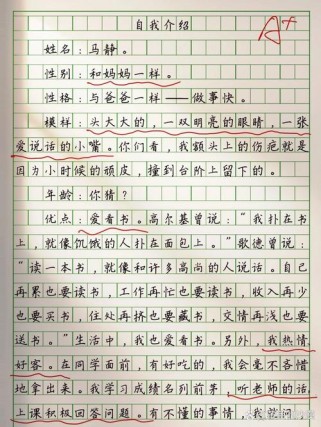 自我介绍
A+
姓名：马静。
性别：和妈妈一样。
性格：与爸爸一样——做事快。
模样：头大大的，一双明亮的眼睛，一张
爱说话的小嘴。你们看，我额头上的伤疤就是
因为小时候的顽皮，撞到台阶上留下的。
年龄：你猜？
优点：爱看书。高尔基曾说：“我扑在书
上，就像饥饿的人扑在面包上。”歌德曾说：
“读一本书，就像和许多高尚的人说话。自己
再累也要读书，工作再忙也要读书，收入再少
也要买书，住处再挤也要藏书，交情再浅也要
送书。”生活中，我也爱看书。另外，我热情
好客。在同学面前，有好吃的，我会毫不吝惜
地拿出来。我学习成绩名列前茅，听老师的话，
上课积极回答问题。有不懂的事情，我就问，